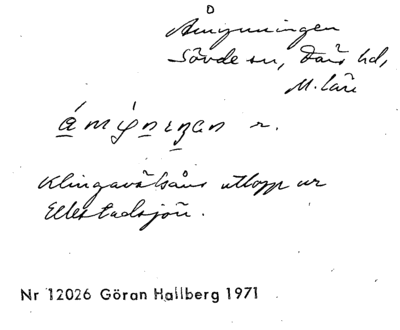 Åmynningen
Sövde sn, Färs hd,
M.län
Klingavälsåns utlopp ur
Ellestadsjön.
Nr 12026 Göran Hallberg 1971